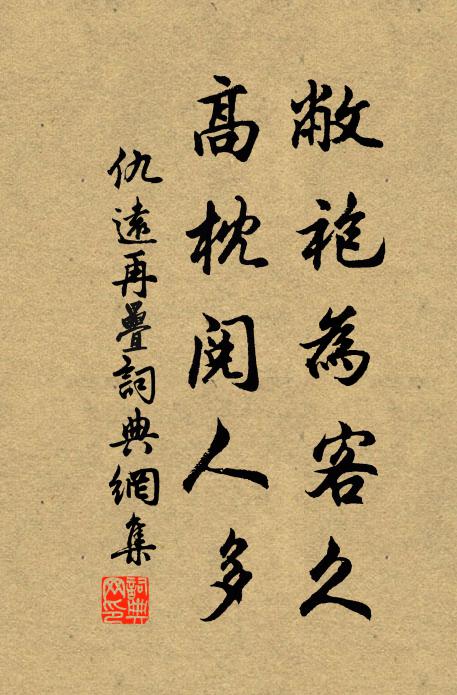 敝袍為客久
高枕閱人多
仇遠再疊詞典網集
詞典网印